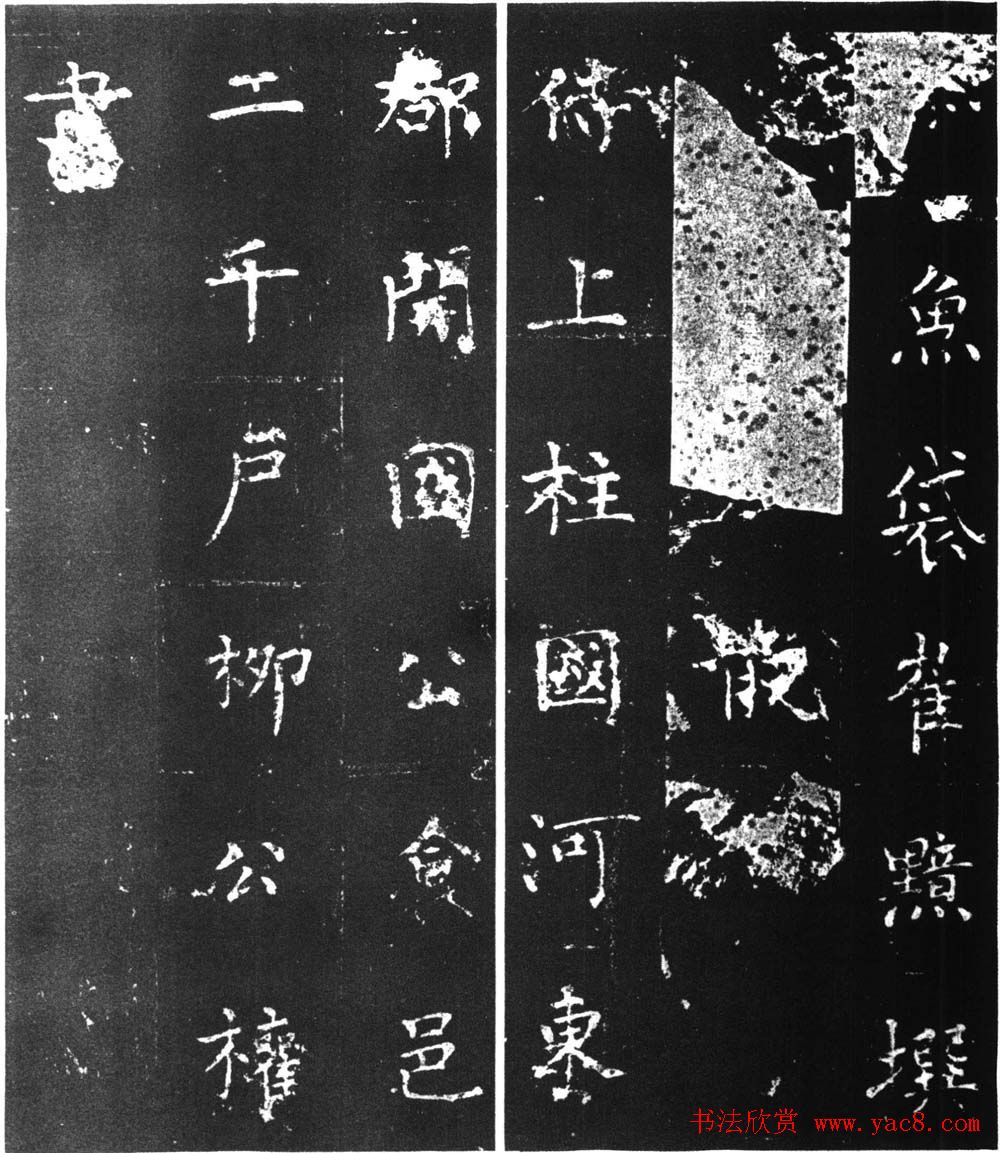 魚袋崔黯撰
散
侍上柱國河東
郡開國公食邑
二千戶柳公權
書
书法欣赏 www.yac8.com